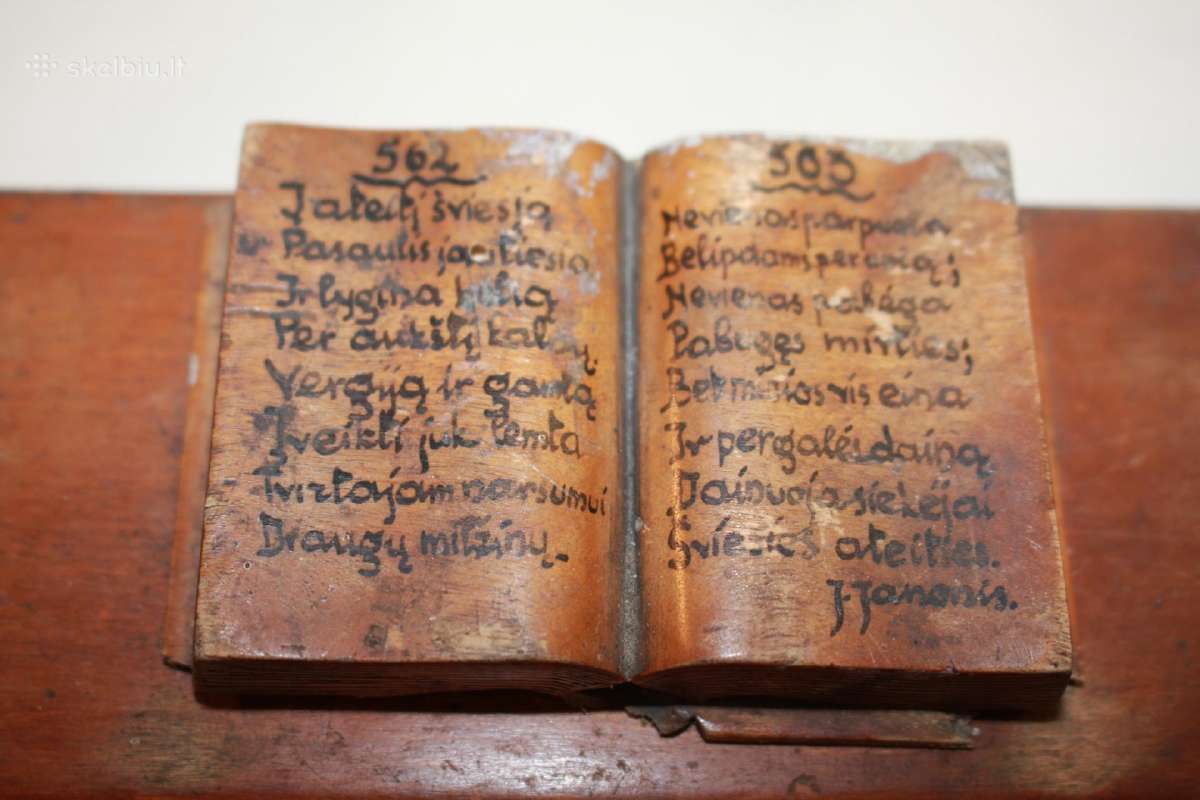 skelbiu.lt
562
Į ateitį šviesią
Pasaulis jau tiesia
Ir lygina kelią
Per aukštų kalnų.
Vergiją ir gautą
Įveikti juk lemta
Tvirtajam narsumui
Draugų milžinų.
563
Nevienas parpuola
Belipdams per uolą;
Nevienas pabėga
Pabūgęs mirties;
Bet minios vis eina
Ir pergalės dainą
Jaibuoja siekėjai
Šviesios ateities.
J. Janonis.